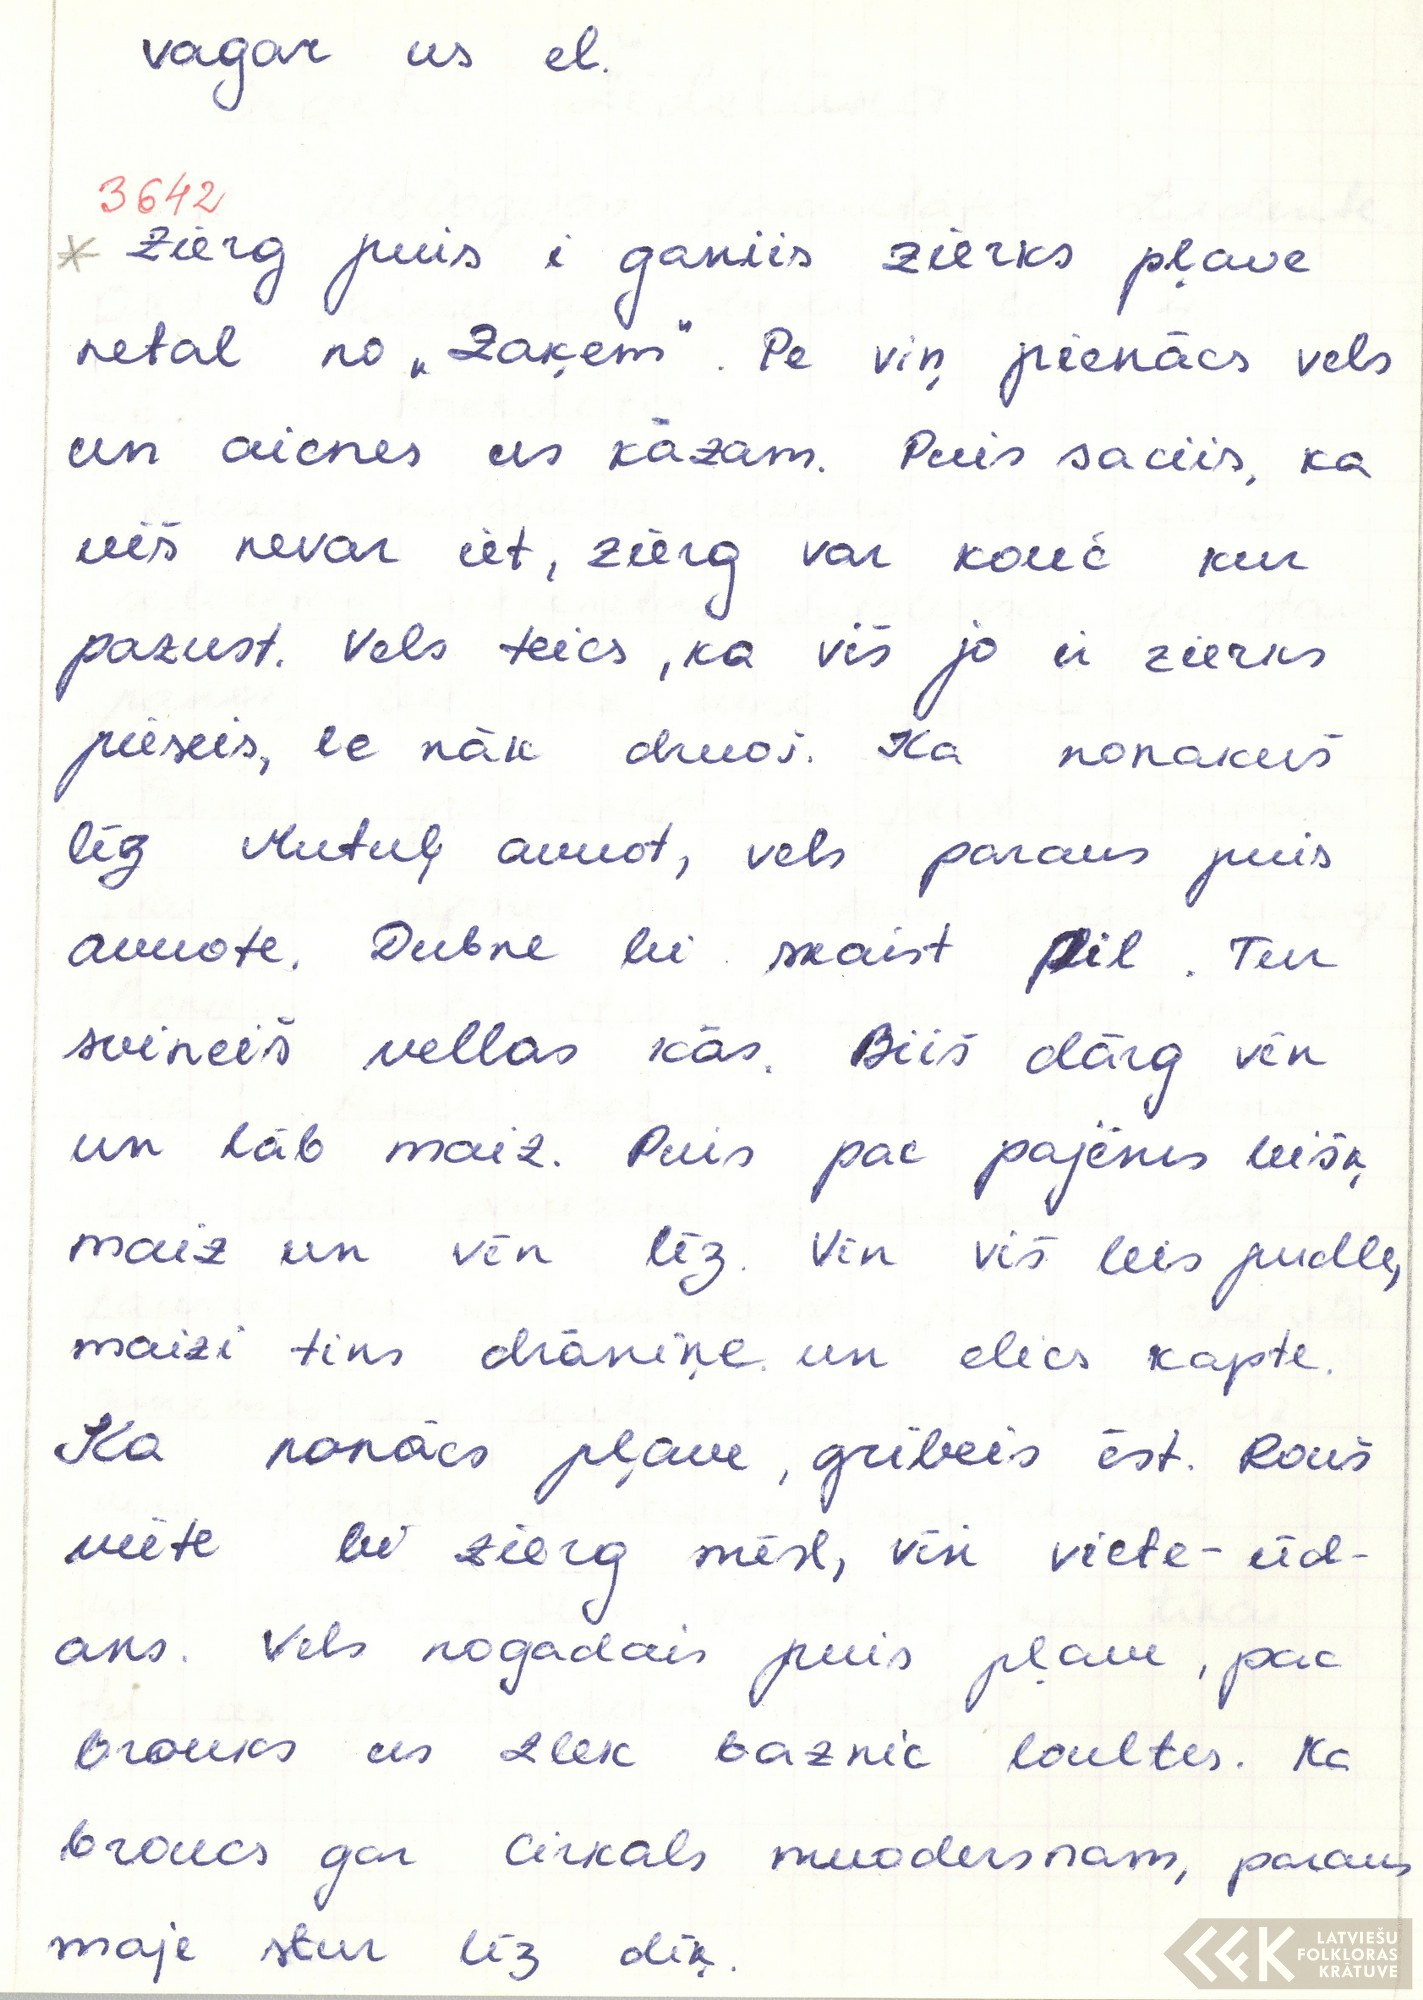 vagar us el.
3642
* Zierg puis i ganiis zierks pļave
netal no „Zaķem". Pe viņ pienācs vels
un aicnes us kāzam. Puis saciis, ka
viš nevar iet, zierg var kouč kur
pazust. Vels teics, ka viš jo ii zierks
pieseis, le nāk druoš. Ka nonakuš
līg Mutuļ avuot, vels paraus puis
avuote. Dubne bi skaist pil. Tur
svineiš vellas kās. Biiš dārg vīn
un lāb maiz. Puis pac pajēmis beišķ
maiz un vīn līz. Vīn viš leis pudle,
maizi tins drāniņe un elics kapte.
Ka nonācs pļave, gribeis ēst. Rouš
viete bi zierg mēsl, vīn viete - ūd-
ans. Vels nogadais puis pļave, pac
brouks us Zlek baznic loultes. Ka
broucs gar Cirkals muodersnam, paraus
maje stur līz dīķ.
LATVIEŠU
FOLKLORAS
KRĀTUVE